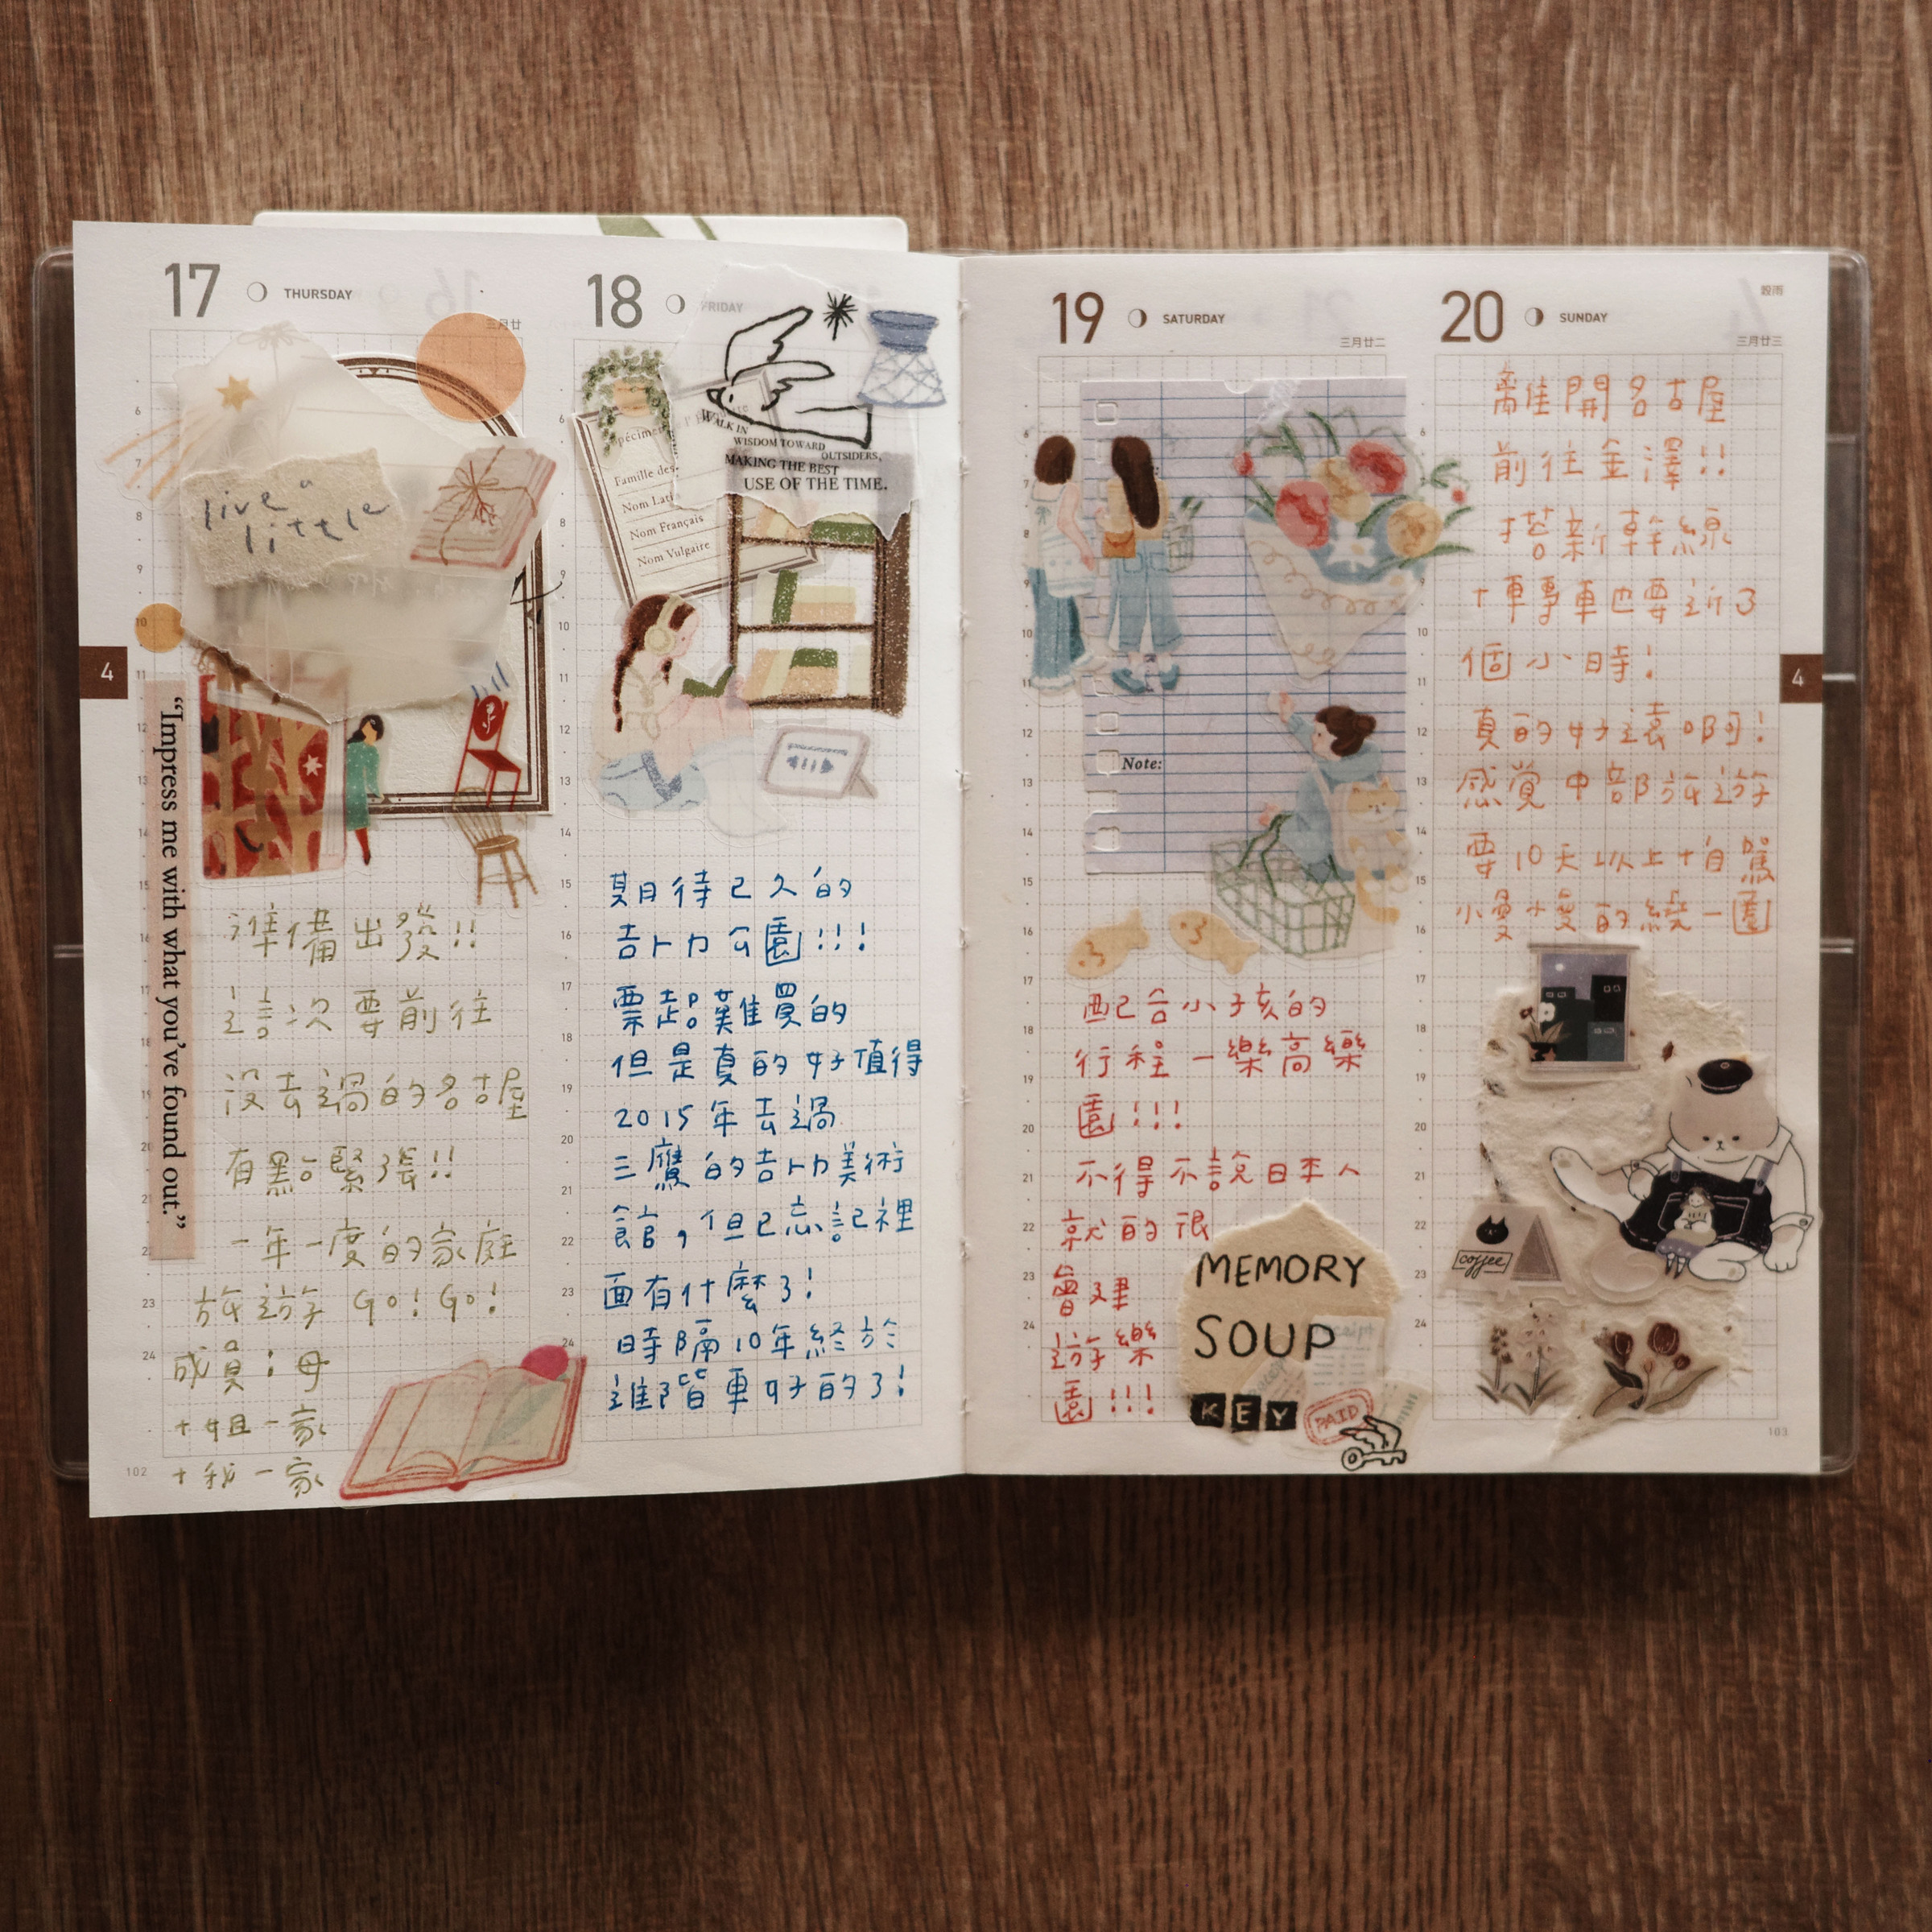 17
THURSDAY
三月廿
live a
little
4
“Impress me with what you’ve found out.”
準備出發!!
這次要前往
沒去過的名古屋
有點緊張!!
一年一度的家庭
旅遊 Go! Go!
成員:母
+姐一家
+我一家
102
18
FRIDAY
WALK IN
WISDOM TOWARD
OUTSIDERS,
MAKING THE BEST
USE OF THE TIME.
Spécimen
Famille des
Nom Latin
Nom Français
Nom Vulgaire
期待已久的
吉卜力公園!!!
票超難買的
但是真的好值得
2015年去過
三鷹的吉卜力美術
館,但已忘記裡
面有什麼了!
時隔10年終於
進階更好的了!
19
SATURDAY
三月廿二
Note:
配合小孩的
行程-樂高樂
園!!!
不得不說日本人
就的很
會建
遊樂
園!!!
MEMORY
SOUP
KEY
PAID
20
SUNDAY
穀雨
三月廿三
離開名古屋
前往金澤!!
搭新幹線
+車專車也要近3
個小時!
真的好遠啊!
感覺中部旅遊
要10天以上+自駕
小慢+慢的繞一圈
4
coffee
103